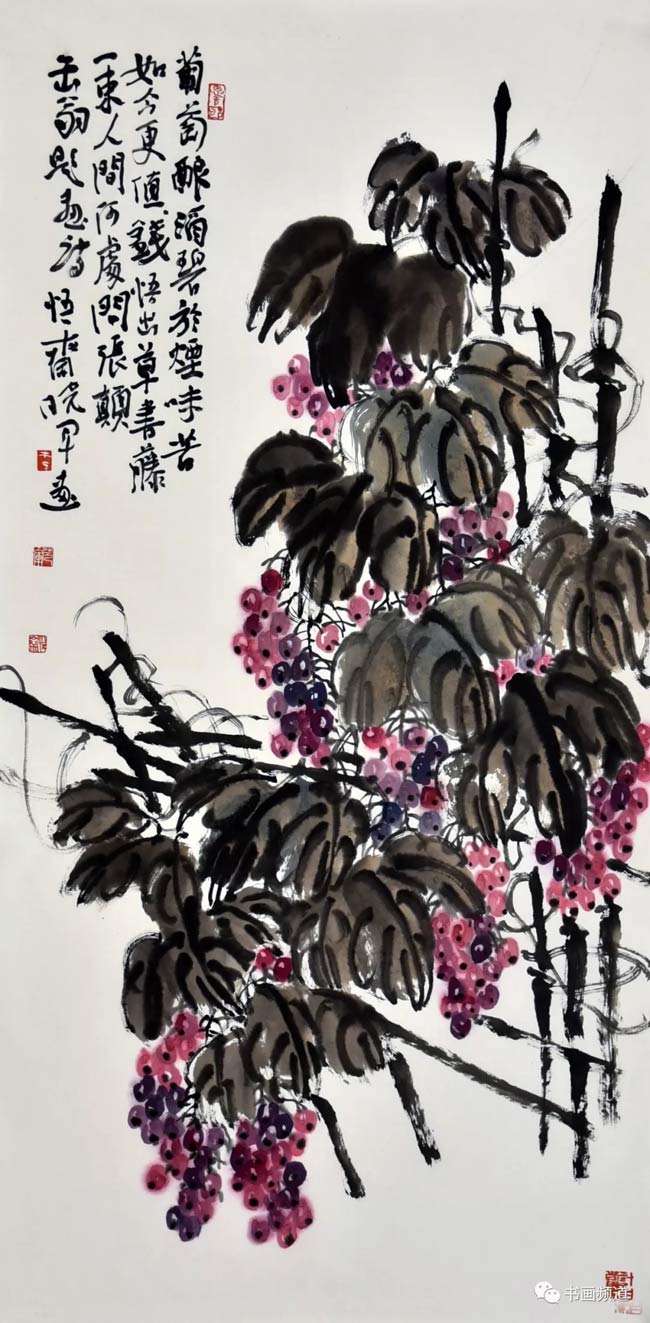 葡萄酿酒碧於煙味苦
如今更值錢悟出草書藤
一束人間何處問張顛
缶翁題畫詩 悟齋曉軍畫
书画频道